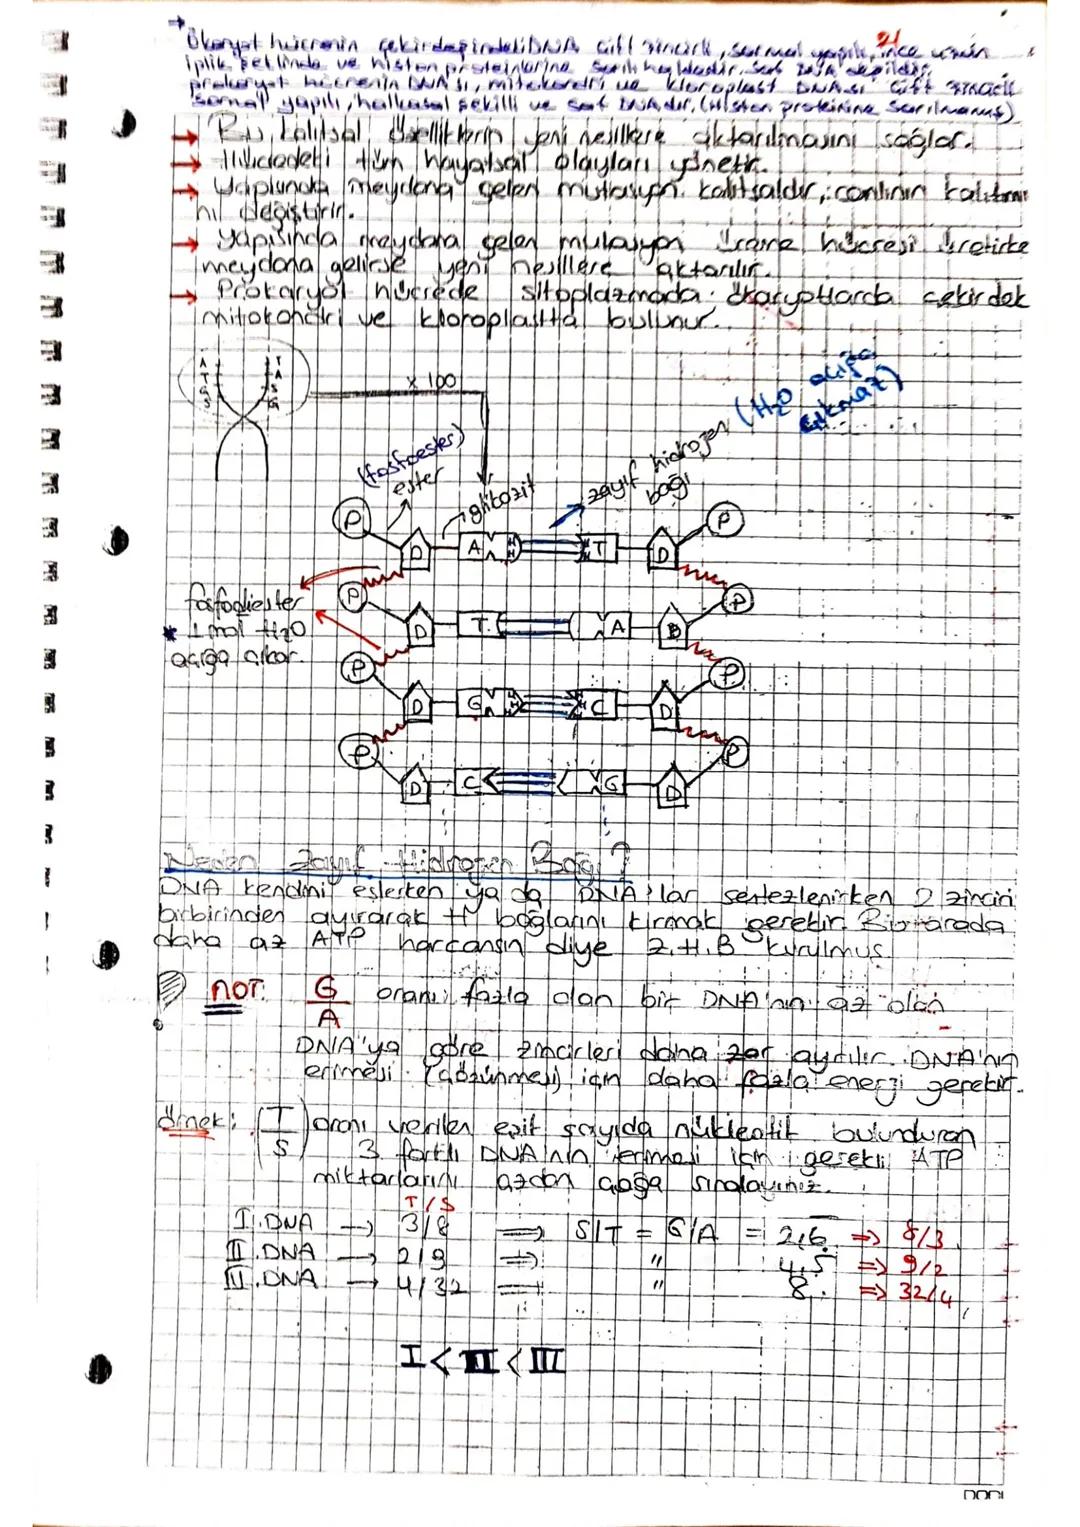 Ökaryot hücrenin çekirdeğindeki DNA çift zincirli, sarmal yapılı, ince uzun
iplik şeklinde ve histon proteinlerine sarılı haldedir.
prokaryot hücrenin DNA'sı, mitokondri ve kloroplast DNA'sı çift zincirli
sarmal yapılı, halkasal şekilli ve DNA'dır. (Histon proteinine sarılmamış)
→ Bu kalıtsal özelliklerin yeni nesillere aktarılmasını sağlar.
→ Hücredeki tüm hayatsal olayları yönetir.
→ Yapısında meydana gelen mutasyon kalıtsaldır, canlının kalıtımı
nı değiştirir.
→ Yapısında meydana gelen mutasyon üreme hücresi üretirke
meydana gelirse yeni nesillere aktarılır.
→ Prokaryot hücrede sitoplazmada ökaryotlarda çekirdek
mitokondri ve kloroplastta bulunur.
A T
T A
G S
S G
x 100
(H₂O açığa
çıkmaz)
(fosfoester)
ester
glikozit
zayıf hidrojen
bağı
P D A T D P
fosfodiester
* 1 mol H₂O
açığa çıkar.
P D T A D P
P D G C D P
P D C G D P
Neden Zayıf Hidrojen Bağı?
DNA kendini eşlerken ya da DNA'lar sentezlenirken 2 zinciri
birbirinden ayırarak H bağlarını kırmak gerekir. Bu arada
daha az ATP harcansın diye Z.H.B kurulmuş.
NOT: G/A oranı fazla olan bir DNA'nın az olan
DNA'ya göre zincirleri daha zor ayrılır. DNA'nın
erimesi (çözünmesi) için daha fazla enerji gerekir.
Örnek: (T/S) oranı verilen eşit sayıda nükleotit bulunduran
3 farklı DNA'nın erimesi için gerekli ATP
miktarlarını azdan çoğa sıralayınız.
T/S
I. DNA → 3/8 ⇒ S/T = G/A = 2,6 ⇒ 8/3
II. DNA → 2/9 ⇒ " 4,5 ⇒ 9/2
III. DNA → 4/32 ⇒ " 8 ⇒ 32/4
I < II < III